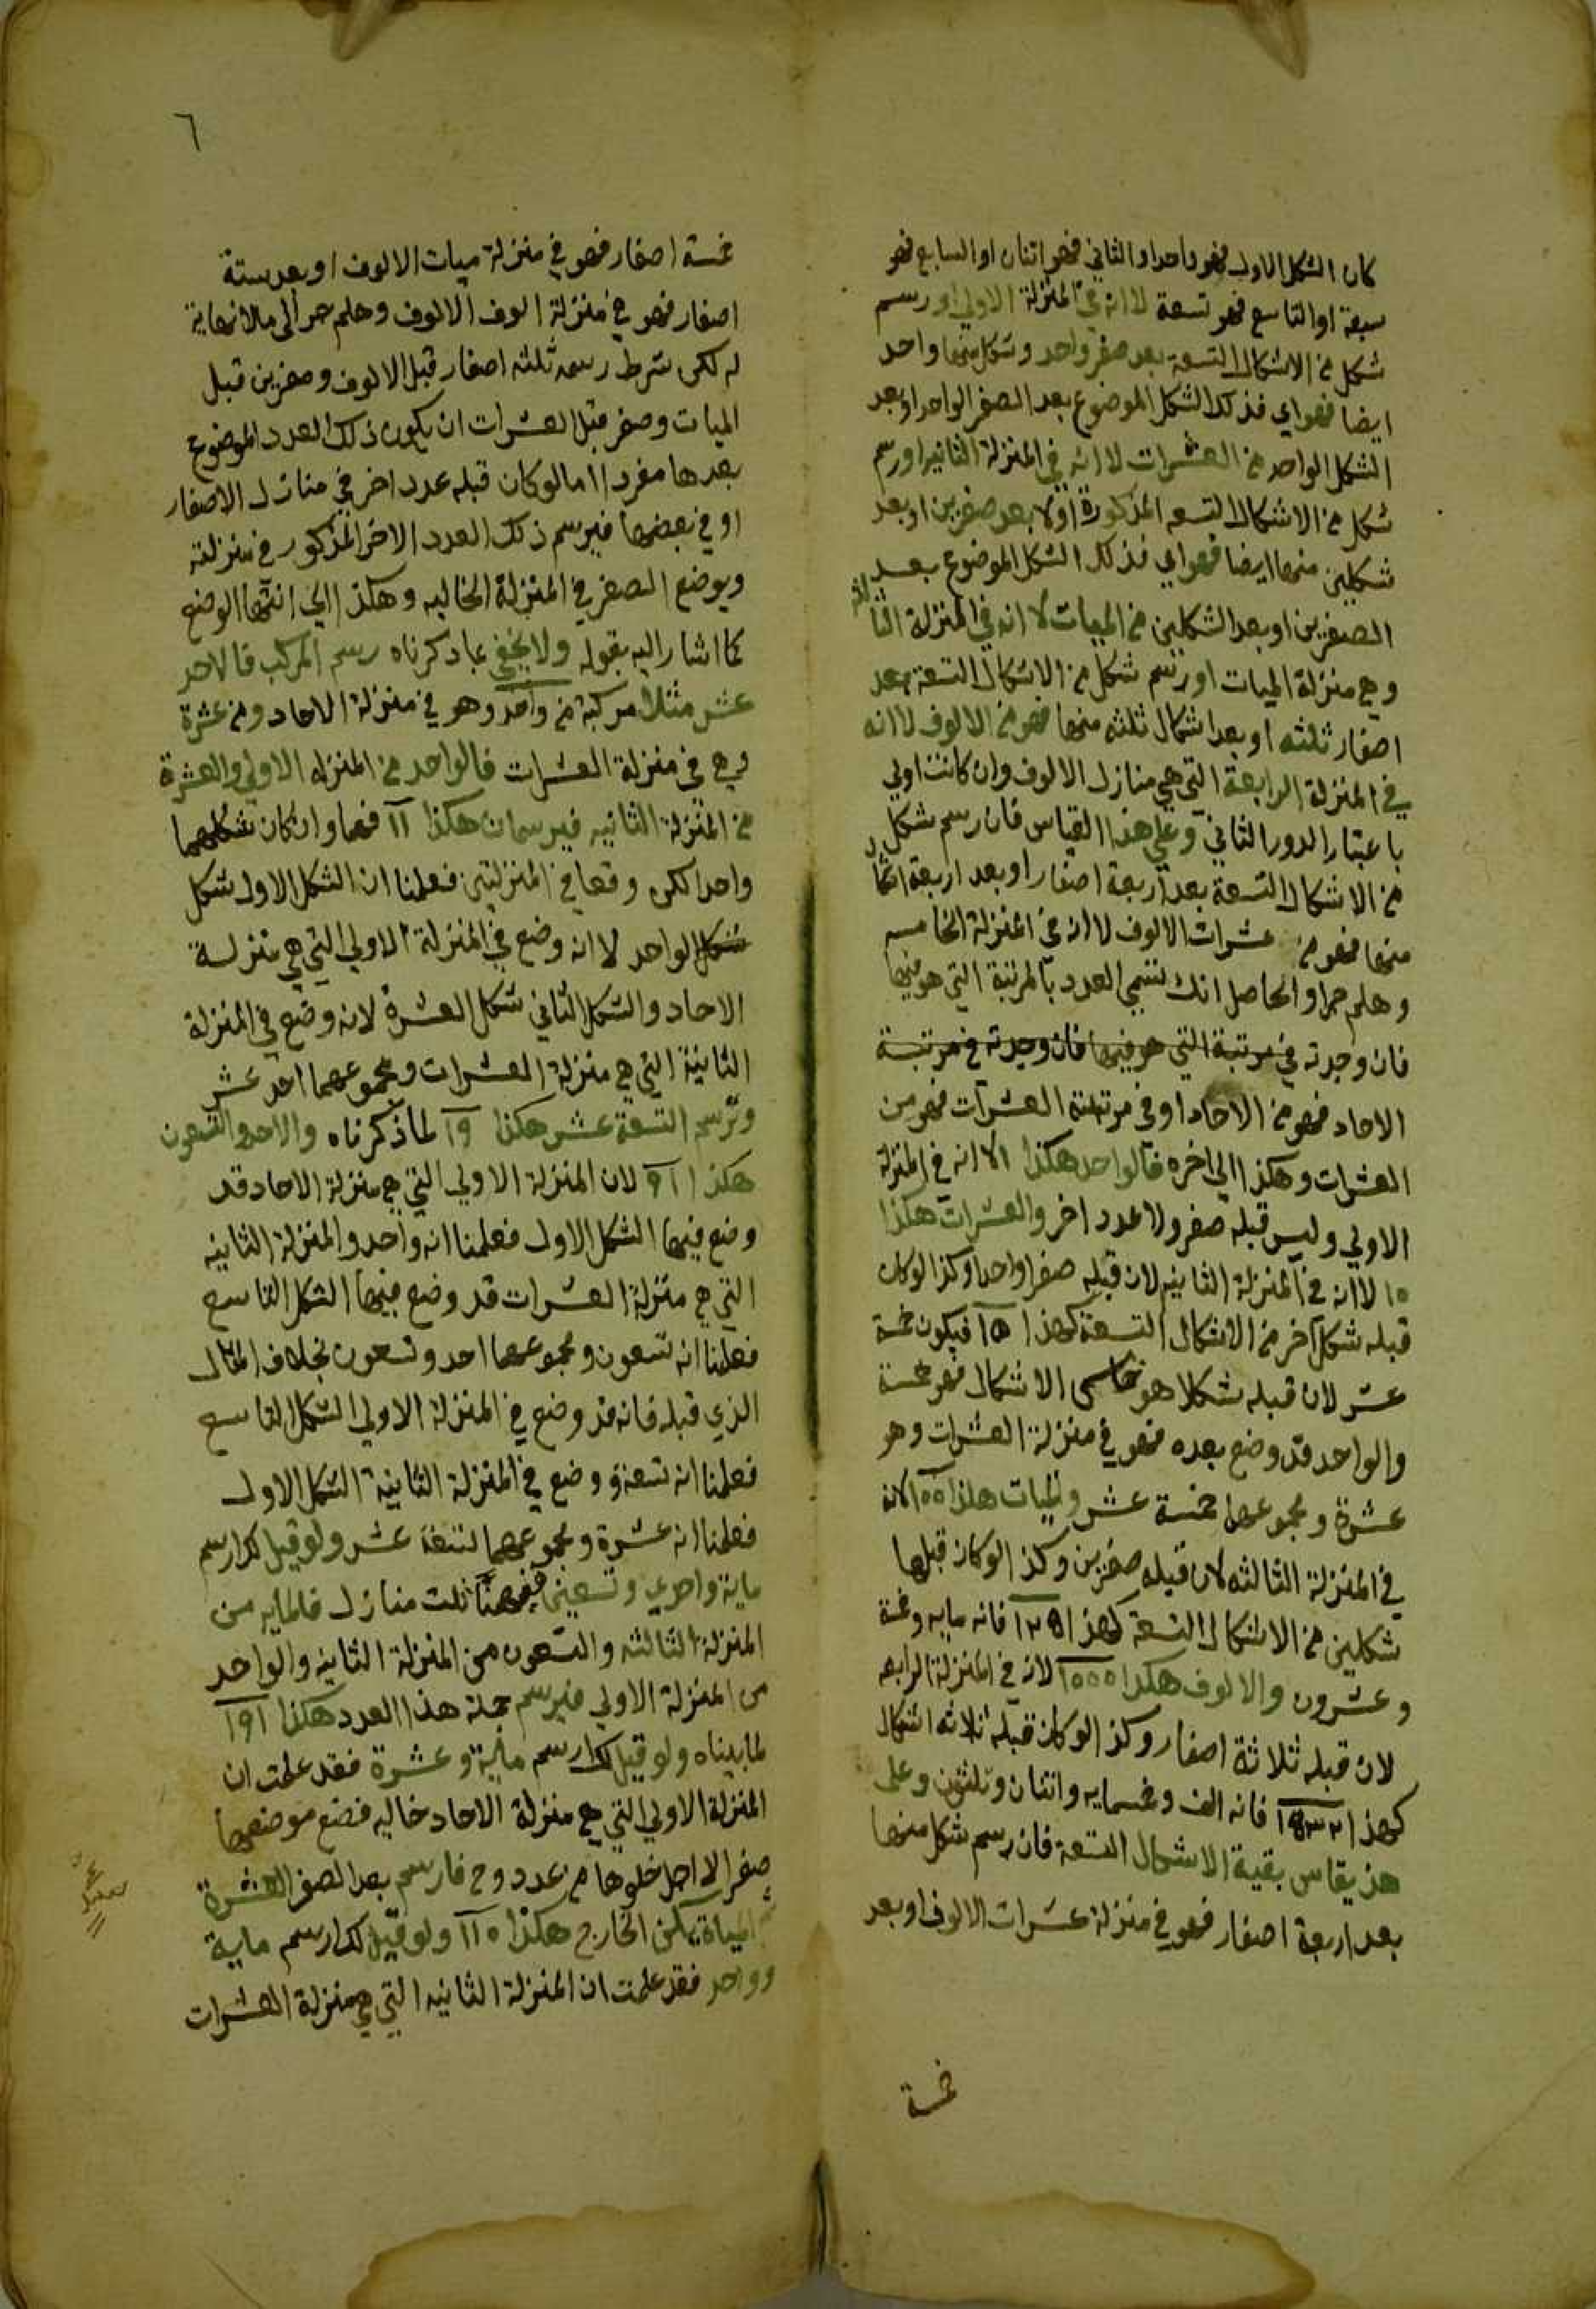 كان الشكل الاول فهو واحد او الثاني فهو اثنان او السابع فهو
سبعة او التاسع فهو تسعة لانه في المنزلة الاولي او رسم
شكل من الاشكال التسعة بعد صفر واحد وشكل منها واحد
ايضا فهو اي فذلك الشكل الموضوع بعد الصفر الواحد او بعد
الشكل الواحد من العشرات لانه في المنزلة الثانيه او رسم
شكل من الاشكال التسعه المذكورة اولا بعد صفرين او بعد
شكلين منها ايضا فهو اي فذلك الشكل الموضوع بعد
الصفرين او بعد الشكلين من الميات لانه في المنزلة الثالثه
وهي منزلة الميات او رسم شكل من الاشكال التسعة بعد
اصفار ثلثه او بعد اشكال ثلثه منها فهو من الالوف لانه
في المنزلة الرابعة التي هي منازل الالوف وان كانت اولي
باعتبار الدور الثاني وعلي هذا القياس فان رسم شكل
من الاشكال التسعة بعد اربعة اصفار او بعد اربعة اشكال
منها فهو من عشرات الالوف لانه في المنزلة الخامسه
وهلم جرا والحاصل انك تسمي العدد بالمرتبة التي هو فيها
فان وجدته في مرتبة التي هو فيها فان وجدته في مرتبة
الاحاد فهو من الاحاد او في مرتبة العشرات فهو من
العشرات وهكذا الي اخره فالواحد هكذا ١ لانه في المنزلة
الاولي وليس قبله صفر ولا عدد اخر والعشرات هكذا
١٥ لانه في المنزلة الثانيه لان قبله صفرا واحدا وكذا لو كان
قبله شكل آخر من الاشكال التسعة كهذا ١٥ فيكون خمسة
عشر لان قبله شكلا هو خامس الاشكال فهو خمسة
والواحد قد وضع بعده فهو في منزلة العشرات وهو
عشرة ومجموعهما خمسة عشر والميات هكذا ١٥٥ لانه
في المنزلة الثالثه لان قبله صفرين وكذا لو كان قبلها
شكلين من الاشكال التسعة كهذا ١٢٥ فانه مايه وخمسة
وعشرون والالوف هكذا ١٥٥٥ لانه في المنزلة الرابعه
لان قبله ثلاثة اصفار وكذا لو كان قبله ثلاثه اشكال
كهذا ١٥٣٢ فانه الف وخمسمايه واثنان وثلثون وعلى
هذا يقاس بقية الاشكال التسعة فان رسم شكل منها
بعد اربعة اصفار فهو في منزلة عشرات الالوف او بعد
خمسة
٦
خمسة اصفار فهو في منزلة ميات الالوف او بعد ستة
اصفار فهو في منزلة الوف الالوف وهلم جرا الى مالانهاية
له لكن شرط رسمه ثلثه اصفار قبل الالوف وصفرين قبل
الميات وصفر قبل العشرات ان يكون ذلك العدد الموضوع
بعدها مفردا اما لو كان قبله عدد اخر في منازل الاصفار
او في بعضها فيرسم ذلك العدد الاخر المذكور في منزلته
ويوضع الصفر في المنزلة الخاليه وهكذا الي انتها الوضع
كما اشار اليه بقوله ولا يخفي بما ذكرناه رسم المركب فالاحد
عشر مثلا مركبة من واحد وهو في منزلة الاحاد ومن عشرة
وهي في منزلة العشرات فالواحد من المنزله الاولي والعشرة
من المنزلة الثانيه فيرسمان هكذا ١١ فهما وان كان شكلهما
واحدا لكن وقعا في المنزلتين فعلمنا ان الشكل الاول شكل
شكل الواحد لانه وضع في المنزلة الاولي التي هي منزلة
الاحاد والشكل الثاني شكل العشرة لانه وضع في المنزلة
الثانية التي هي منزلة العشرات ومجموعهما احد عشر
وترسم التسعة عشر هكذا ١٩ لما ذكرناه والاحد والتسعون
هكذا ٩١ لان المنزلة الاولي التي هي منزلة الاحاد قد
وضع فيها الشكل الاول فعلمنا انه واحد والمنزلة الثانيه
التي هي منزلة العشرات قد وضع فيها الشكل التاسع
فعلمنا انه تسعون ومجموعهما احد وتسعون بخلاف المثال
الذي قبله فانه قد وضع في المنزلة الاولي الشكل التاسع
فعلمنا انه تسعة ووضع في المنزلة الثانية الشكل الاول
فعلمنا انه عشرة ومجموعهما تسعة عشر ولو قيل لك ارسم
ماية واحدي وتسعين فهنا ثلث منازل فالمايه من
المنزلة الثالثه والتسعون من المنزلة الثانيه والواحد
من المنزلة الاولي فيرسم جملة هذا العدد هكذا ١٩١
لما بيناه ولو قيل لك ارسم ماية وعشرة فقد علمت ان
المنزلة الاولي التي هي منزلة الاحاد خاليه فضع موضعها
صفرا لاجل خلوها من عدد وح فارسم بعد الصفر العشرة
ثم المياة يكن الخارج هكذا ١١٥ ولو قيل لك ارسم ماية
وواحد فقد علمت ان المنزلة الثانيه التي هي منزلة العشرات